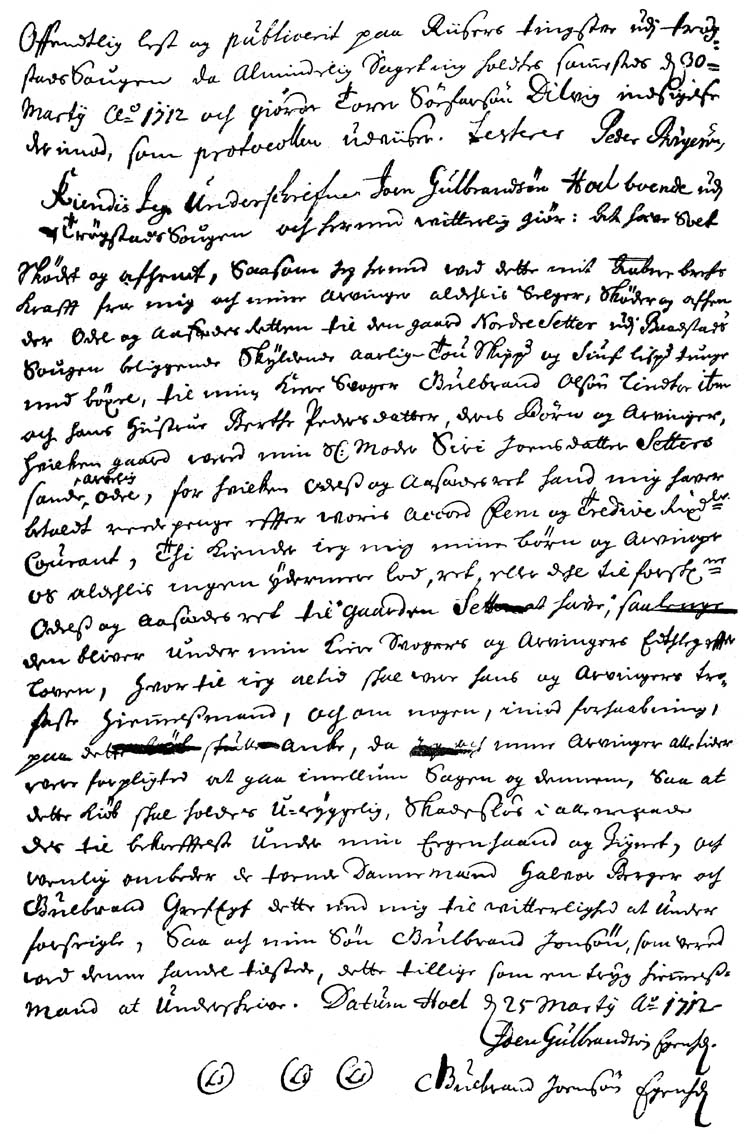 Offendtlig lest og publicerit paa Riisers tingstue udj trøg-
stad Sougen da Almindelig Sageting holdtes samesteds d 30=
Martÿ Ao 1712 och giorde Torer Dilvig indsigelse
der imod, som protocollen udviiser. Testerer Peder
Kiendis Jeg Underschrefne Joen Gulbrandsøn Hoel boende udj
Trøgstad Sougen och hermed witterlig giør: det have Solt
Skiødt og afhendt, Saasom Jeg hermed wed dette mit aabne brefs
krafft fra mig och mine Arvinger aldehlis Selger, Skiøder og affhen
der Odel og Aasædes Retten til den gaard Nordre Setter udj Baadstad
Sougen beliggende Skyldende aarlig Tou Skippd og Siuf lispd tunge
med böxel, til min kiere Svoger Gulbrand Olsøn Lindtoe
och hans Hustrue Berthe Pedersdatter, deris Börn og Arvinger,
Hvilken gaard vered min Sl: Moder Siri Joensdatter Setters
sande arvelig Odel, for hvilken Odels og Aasædes ret hand mig haver
betaldt rede penge effter woris Accord Fem og Tredive Rixdlr
Courant, Thi kiender ieg mig mine börn og Arvinge
os aldehlis ingen ydermere lod, ret, eller dehl til forschne
Odels og Aasædes ret til gaarden Setter at have, saalenge
den bliver under min kiere Svogers og Arvingers effter
Loven, hvor til ieg altid skal were hans og Arvingers tro-
faste Hiemmelsmand, och om nogen, imod forhaabning,
paa dette skulle Anke, da mine Arvinger alletider
were forpligted at gaa imellum Sagen og dennem, Saa at
dette kiöb skal holdes U-ryggelig, Skadeslös i alle maade
des til bekreffttelse Under min Eegenhaand og Zignet, och
wenlig ombeder de tvende Dannemænd Halvor Berger och
Gulbrand dette med mig til witterlighed at Under
forseigle, Saa och min Søn Gulbrand Jonsøn, som vered
wed denne handel tilstede, dette tillige som en tryg hiemmels-
mand at Underskrive. Datum Hoel d 25 Martÿ Ao 1712
Joen Gulbrandsøn Egenhd.
LS LS LS Gulbrand Joensøn Egenhd